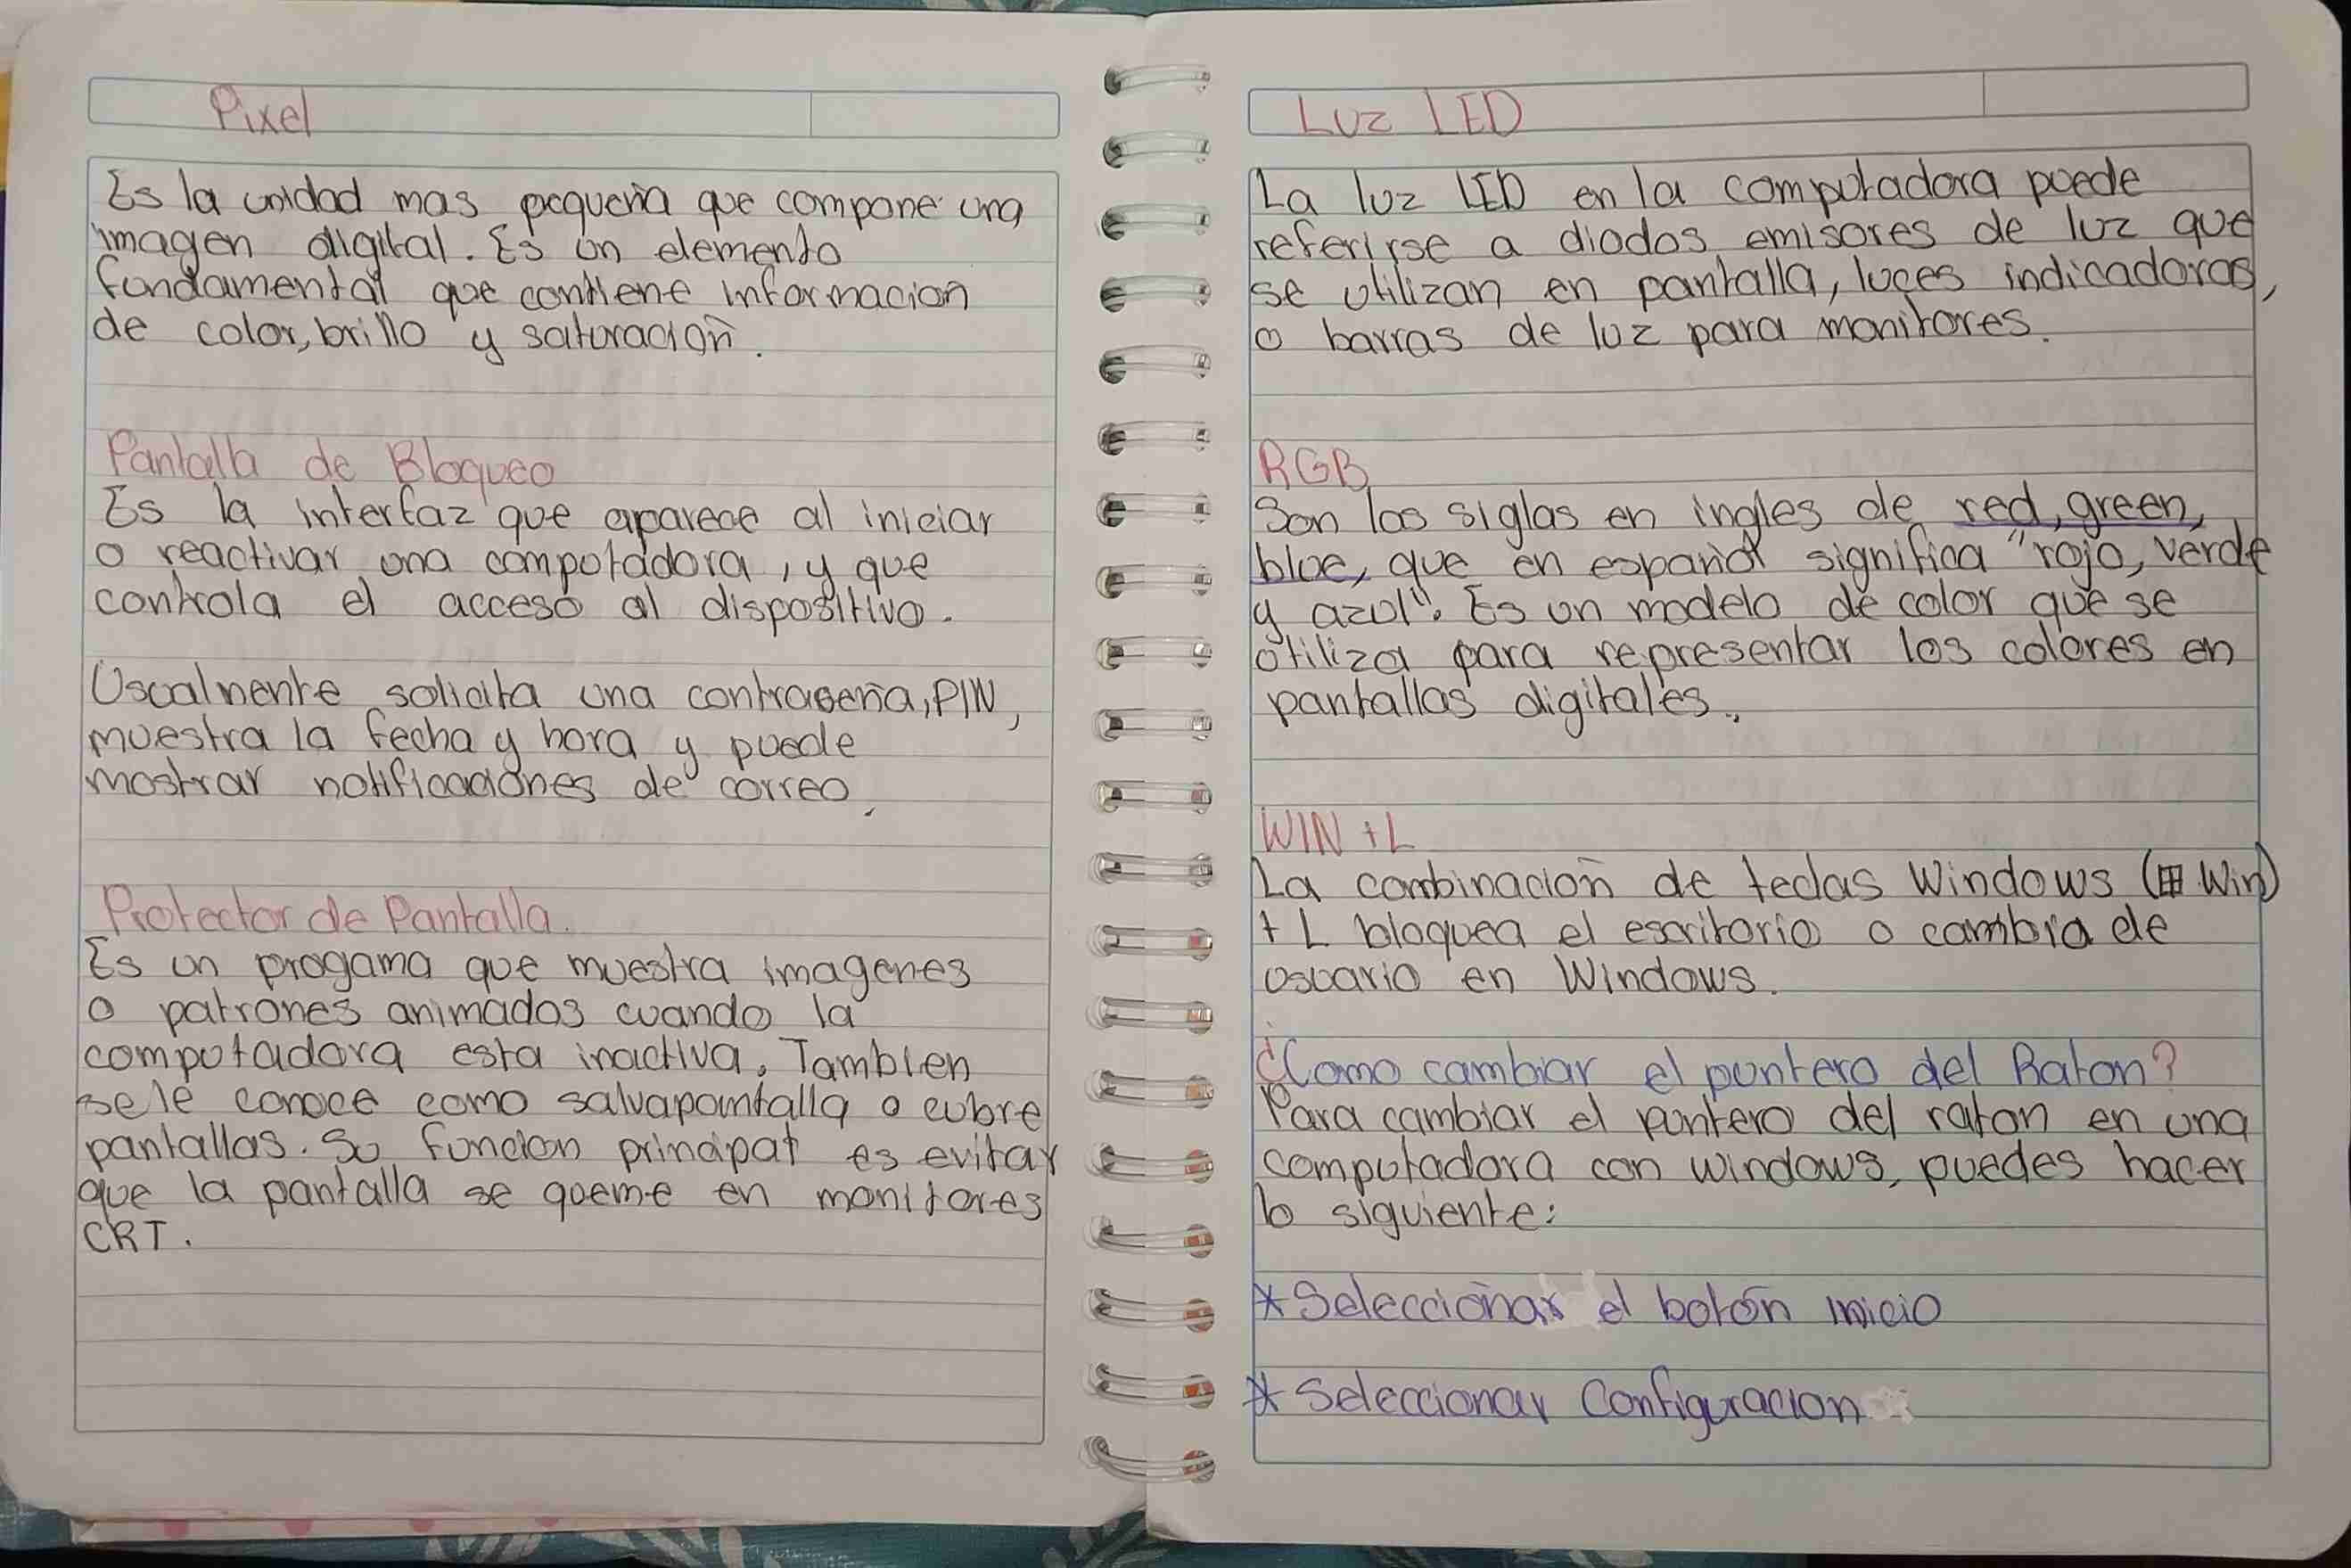 Pixel
Es la unidad mas pequeña que compone una
imagen digital. Es un elemento
fundamental que contiene informacion
de color, brillo y saturación.
Pantalla de Bloqueo
Es la interfaz que aparece al iniciar
o reactivar una computadora, y que
controla el acceso al dispositivo.
Usualmente solicita una contraseña, PIN,
muestra la fecha y hora y puede
mostrar notificaciones de correo.
Protector de Pantalla.
Es un progama que muestra imagenes
o patrones animados cuando la
computadora esta inactiva. Tambien
se le conoce como salvapantalla o cubre
pantallas. Su funcion principal es evitar
que la pantalla se queme en monitores
CRT.
Luz LED
La luz LED en la computadora puede
referirse a diodos emisores de luz que
se utilizan en pantalla, luces indicadoras,
o barras de luz para monitores.
RGB
Son las siglas en ingles de red, green,
blue, que en español significa "rojo, verde
y azul". Es un modelo de color que se
utiliza para representar los colores en
pantallas digitales.
WIN + L
La combinación de teclas Windows (⊞ Win)
+ L bloquea el escritorio o cambia de
usuario en Windows.
¿Como cambiar el puntero del Raton?
Para cambiar el puntero del raton en una
computadora con windows, puedes hacer
lo siguiente:
* Seleccionar el botón inicio
* Seleccionar Configuracion